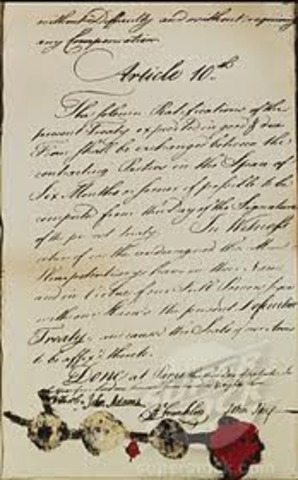 without difficulty and without requiring
any Compensation.
Article 10th
The solemn Ratifications of the
present Treaty expedited in good & due
Form shall be exchanged between the
contracting Parties in the Space of
Six Months or sooner if possible to be
computed from the Day of the Signature
of the present Treaty. In Witness
whereof we the undersigned their Ministers
Plenipotentiary have in their Name
and in Virtue of our Full Powers signed
with our Hands the present Definitive
Treaty, and caused the Seals of our Arms
to be affix'd thereto.
Done at Paris
John Adams B Franklin John Jay
superstock.com